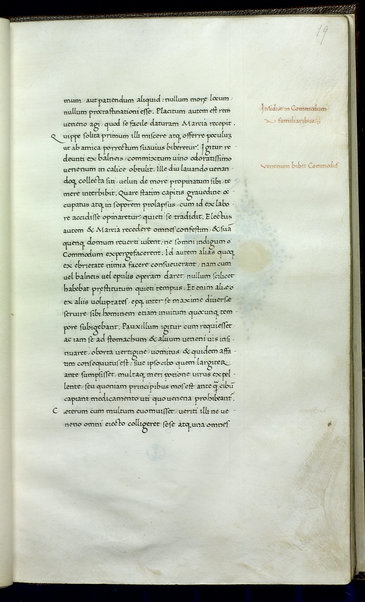 19
mum, aut patiendum aliquid, nullum morę locum,
nullum procrastinationi esse. Placitum autem est rem
ueneno agi, quod se facile daturam Marcia recepit.
Quippe solita primum illi miscere atq offerre poculum,
ut ab amica porrectum suauius biberetur. Igitur re
deunti ex balneis, commixtum uino odoratissimo
uenenum in calice obtulit. Ille diu lauando uenan
doq collecta siti, uelut de more propinatum sibi, te
mere interbibit. Quare statim capitis grauedine oc
cupatus atq in soporem prolapsus, cum id ex labo
re accidisse opinaretur, quieti se tradidit. Electus
autem & Marcia recedere omnes confestim, & sua
quenq domum reuerti iubent, ne somni indigum
Commodum expergefacerent. Id autem alias quoq
ex ebrietate nimia facere consueuerant, nam cum
uel balneis uel epulis operam daret, nullum scilicet
habebat prestitutum quieti tempus. Et enim alię
ex aliis uoluptates, epq inter se maxime diuersę
seruire sibi hominem etiam inuitum quocunq tem
pore subigebant. Pauxillum igitur cum requiesset
ac iam se ad stomachum & aluum ueneni uis insi
nuaret, oborta uertigine, uomitus & quidem affa
tim consequutus est, siue ipso cibo quem largiter
ante sumpsisset, multaq meri potione uirus expel
lente, seu quoniam principibus mos est ante q cibum
capiant medicamento uti quo uenena prohibeant.
Cęterum cum multum euomuisset, ueriti illi ne ue
neno omni eiecto colligeret sese atq una omnes
Insidiae in Commodum
a familiaribus
Venenum bibit Commodus